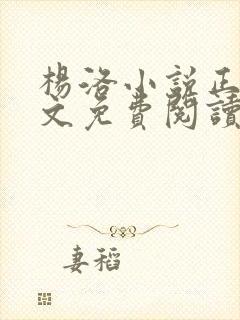 楊洛小說正
文免費閱讀
妻稻